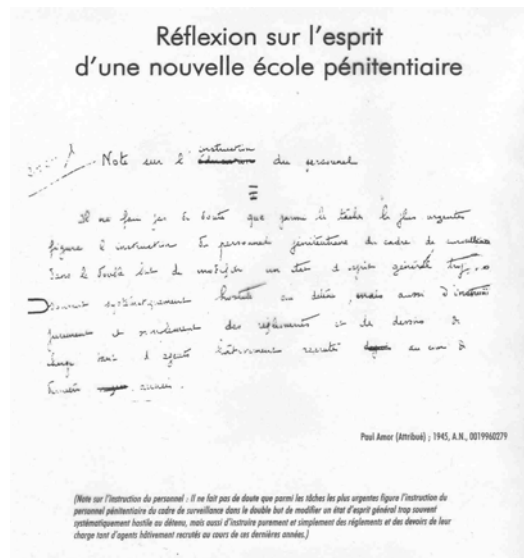 Réflexion sur l'esprit
d'une nouvelle école pénitentiaire
instruction
Note sur l' éducation du personnel
Il ne fait pas de doute que parmi les tâches les plus urgentes
figure l'instruction du personnel pénitentiaire du cadre de surveillance
dans le double but de modifier un état d'esprit général trop
souvent systématiquement hostile au détenu, mais aussi d'instruire
purement et simplement des règlements et des devoirs de
charge tant d'agents hâtivement recrutés au cours de
dernières années.
Paul Amor (Attribué) ; 1945, A.N., 0019960279
(Note sur l'instruction du personnel : Il ne fait pas de doute que parmi les tâches les plus urgentes figure l'instruction du
personnel pénitentiaire du cadre de surveillance dans le double but de modifier un état d'esprit général trop souvent
systématiquement hostile au détenu, mais aussi d'instruire purement et simplement des règlements et des devoirs de leur
charge tant d'agents hâtivement recrutés au cours de ces dernières années.)